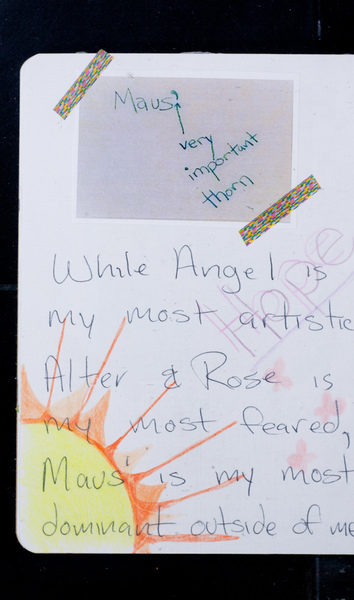 Maus'
very
important
thorn
Hope
While Angel is
my most artistic
Alter & Rose is
my most feared,
Maus' is my most
dominant outside of me